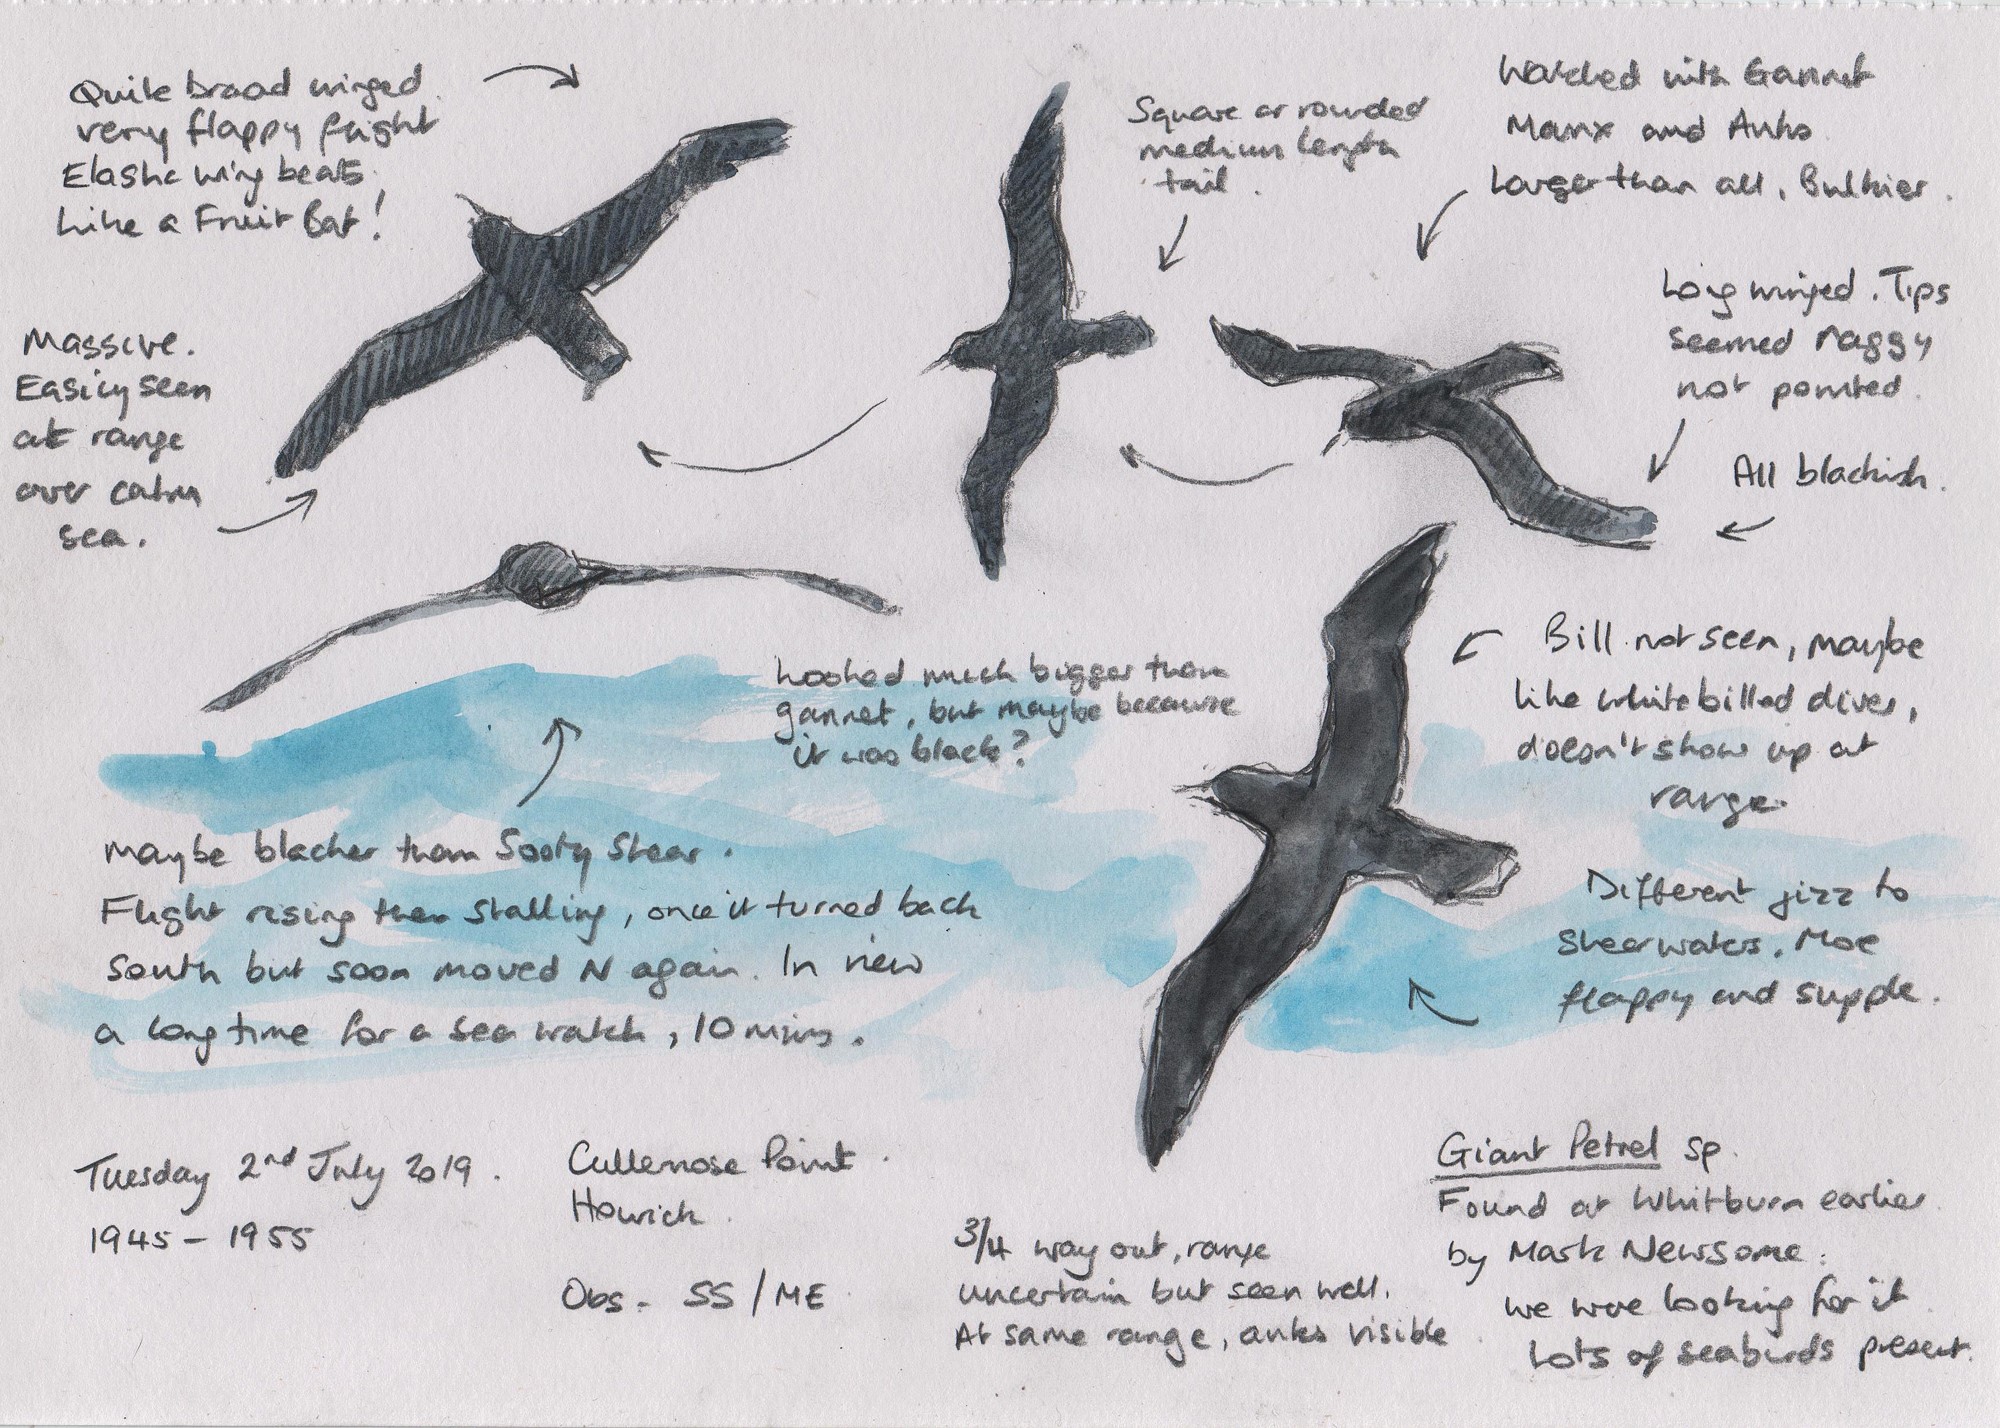 Quite broad winged.
very flappy flight
Elastic wing beats.
Like a Fruit Bat!
Square or rounded
medium length
tail.
Watched with Gannet
Manx and Auks.
Larger than all, Bulkier.
Massive.
Easily seen
at range
over calm
sea.
Long winged. Tips
seemed raggy
not pointed.
All blackish.
Looked much bigger than
gannet, but maybe because
it was black?
Bill not seen, maybe
like white billed diver,
doesn't show up at
range.
Maybe blacker than Sooty Shear.
Flight rising then stalling, once it turned back
South but soon moved N again. In view
a long time for a sea watch, 10 mins.
Different jizz to
Shearwaters. More
flappy and supple.
Tuesday 2nd July 2019.
1945 - 1955
Cullernose Point.
Howick.
Obs. SS / ME
3/4 way out, range
uncertain but seen well.
At same range, auks visible
Giant Petrel sp.
Found at Whitburn earlier
by Mark Newsome.
we were looking for it.
Lots of seabirds present.